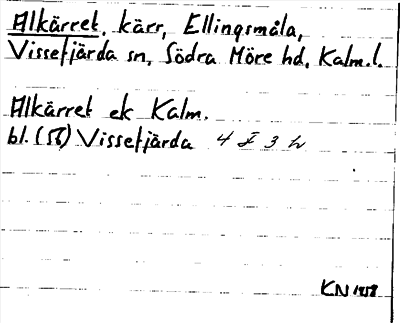 Alkärret, kärr, Ellingsmåla,
Vissefjärda sn, Södra Möre hd, Kalm. l.
Alkärret ek Kalm.
bl. (56) Vissefjärda 4 I 3 h
KN 1958